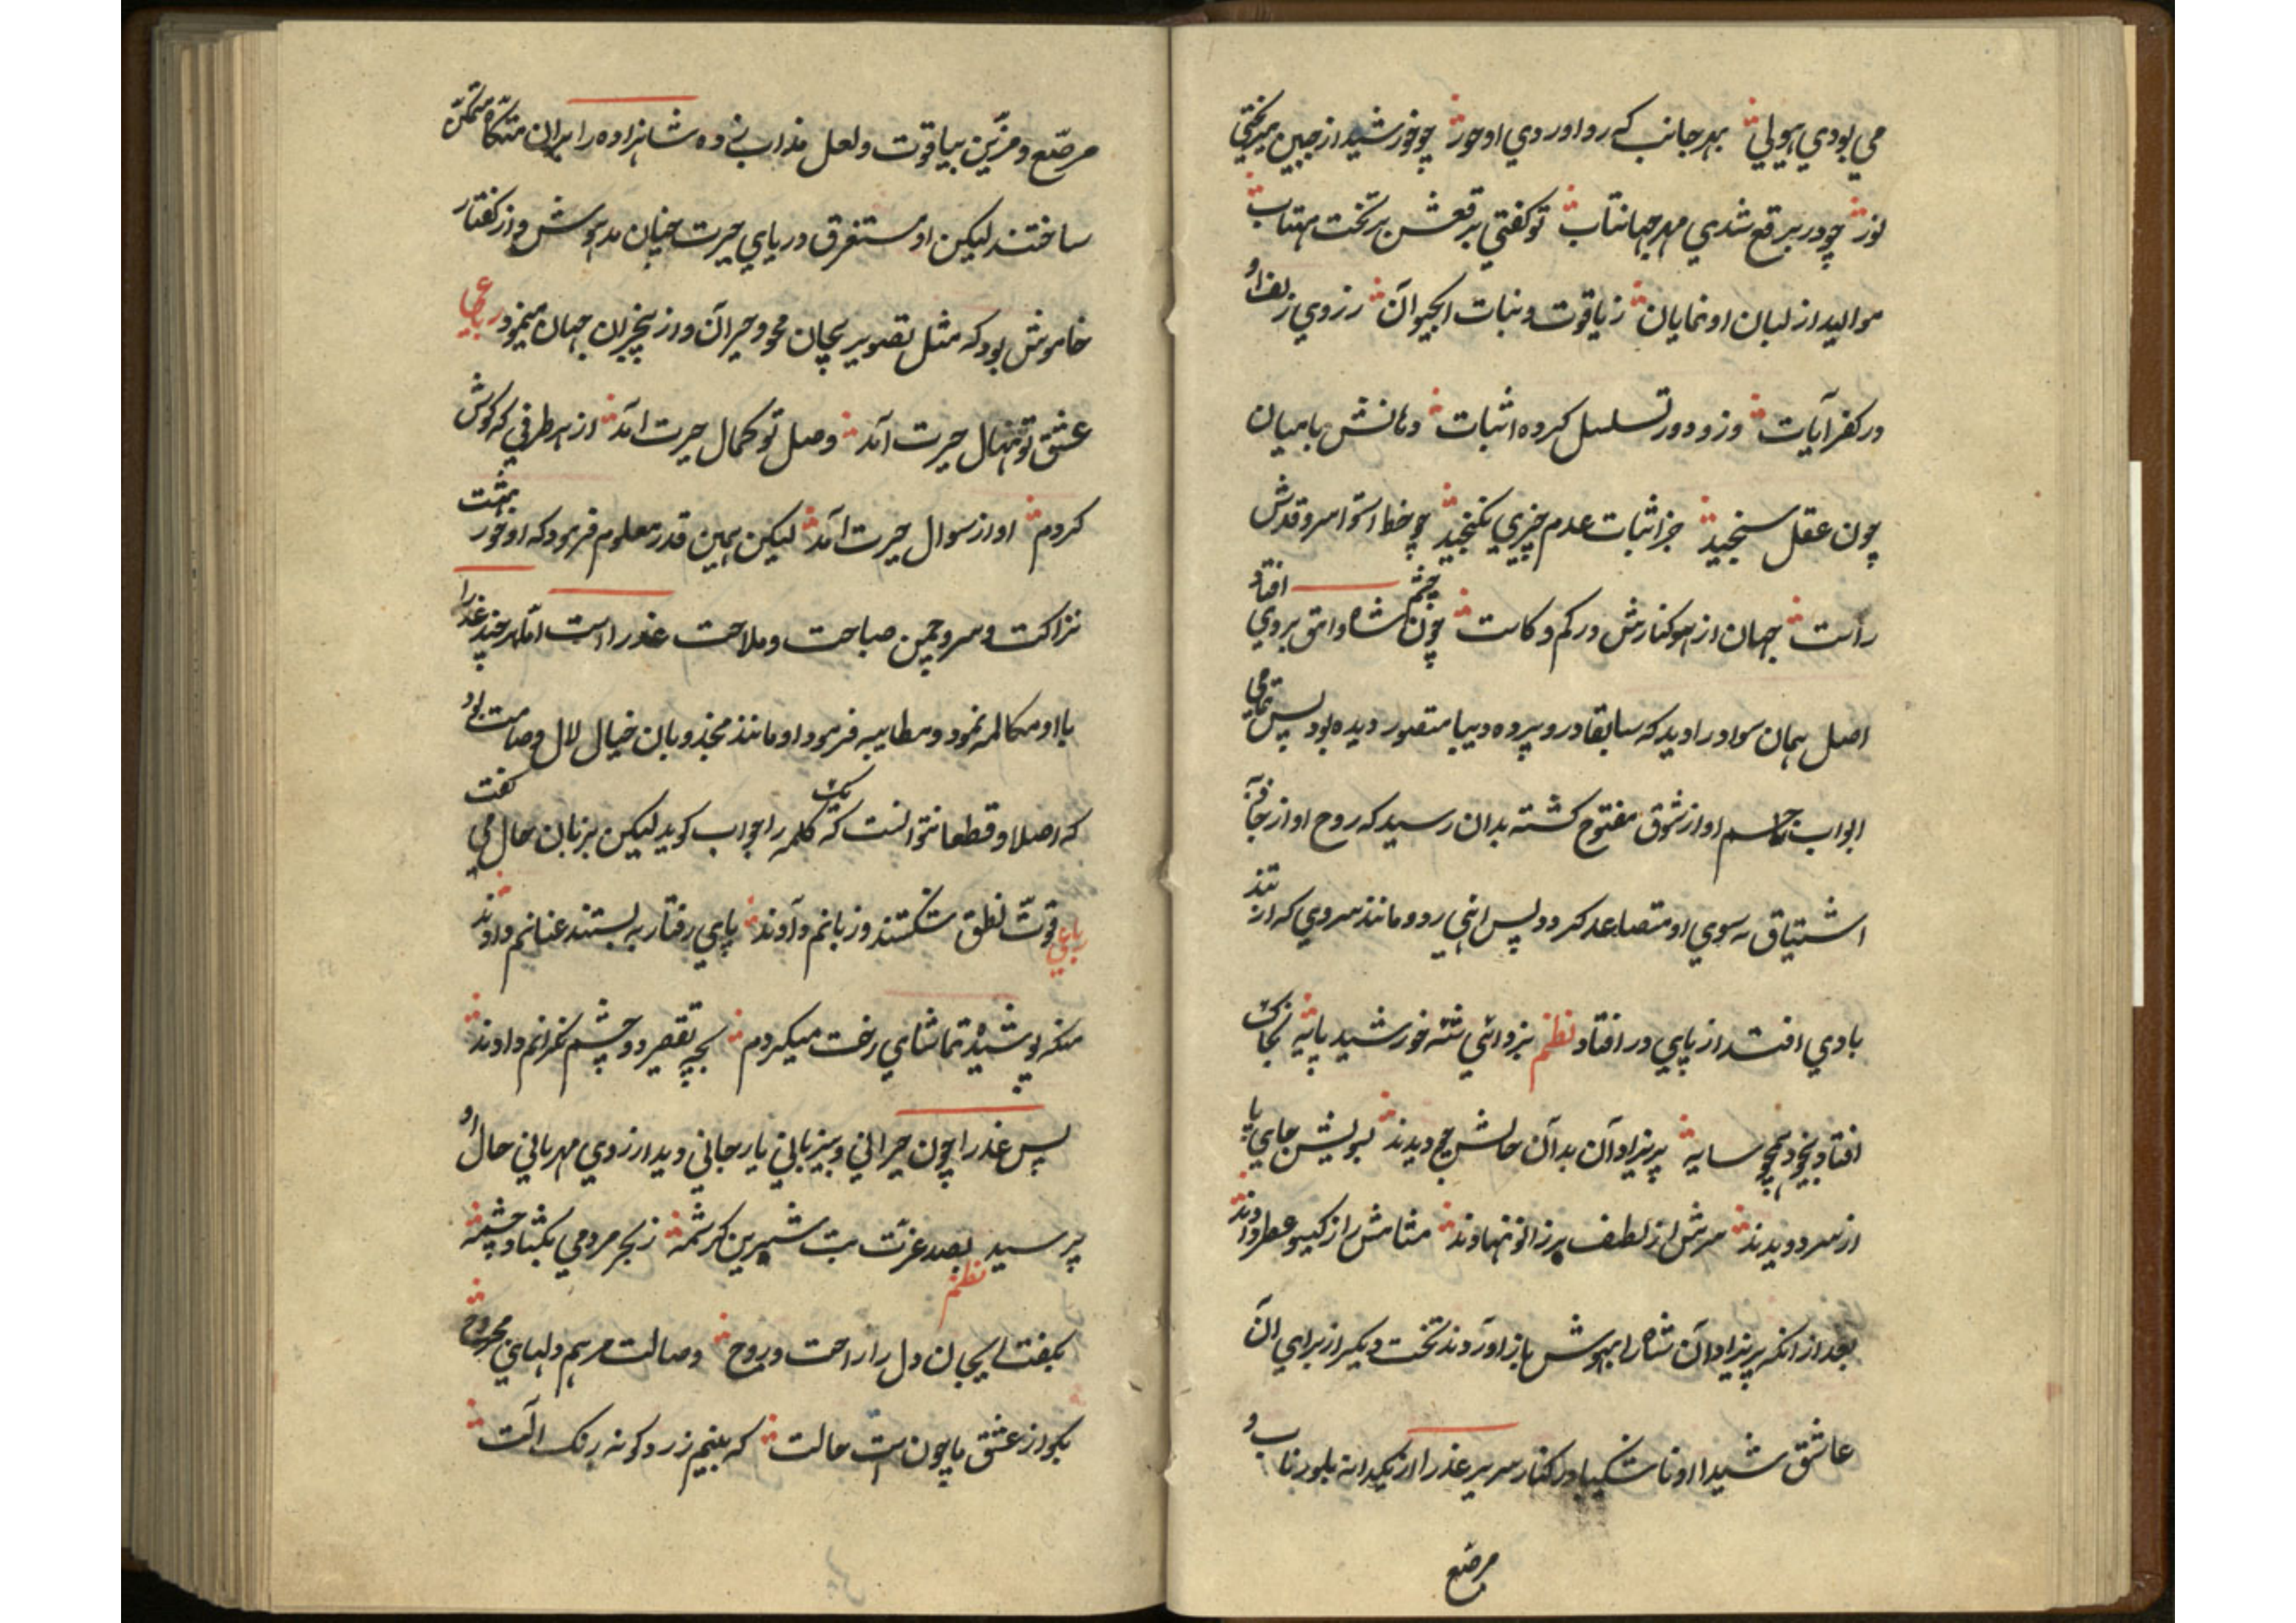 می بودی هیولی بهر جانب که رو اوردی او حور چو خورشید از جبین میریختی
نور چو در برقع شدی مهر جهانتاب تو کفتی برقعش بر تخت مهتاب
موالید از لبان او نمایان ز یاقوت و نبات ابحیوان رزوی زلف او
در کفر آیات وزو دور تسلسل کرده اثبات دهانش با میان
چون عقل سنجید جز اثبات عدم چیزی نکنجید چو خط استوا سرو قدش
راست جهان از هر کنارش در کم و کاست چون چشم شاه وامق بروی افتاد
اصل همان سواد را دید که سابقا در پرده دیبا متصور دیده بود پس تمامی
ابواب جاسم او از شوق مفتوح کشته بدان رسید که روح او از جانب
اشتیاق به سوی او متصاعد کردد پس انی رود و مانند سروی که از تند
بادی افتد از پای در افتاد نظم بزد آئی شه خورشید پایه بخاک
افتاد بیخود همچو سایه پریزادان بدان حالش چو دیدند بسویش جای پا
از سر دویدند سرش از لطف بر زانو نهادند مشامش را ز کیسو عطر دادند
بعد از انکه پریزادان شاه را بهوش باز اوردند تخت دیکر از برای ان
عاشق شیدا و ناشکیبا در کنار سریر عذرا از یکدانه بلور ناب و
مرصّع
مرصّع و مزیّن بیاقوت و لعل مذاب زده شاهزاده را بران متکاه متمکّن
ساختند لیکن او مستغرق دریای حیرت چنان مدهوش و از کفتار
خاموش بود که مثل تصویر بیجان محو و حیران و از بیخبران جهان مینمود رباعی
عشق تو نهال حیرت آمد وصل تو کمال حیرت امد از هر طرفی که کوش
کردم اواز سوال حیرت امد لیکن همین قدر معلوم فرمود که او حور بهشت
نزاکت و سرو چمن صباحت و ملاحت عذرا است امّا هر چند عذرا
با او مکالمه نمود و مطایبه فرمود او مانند مجذوبان خیال لال و صامت بود
که اصلا و قطعا نتوانست که یک کلمه را جواب کوید لیکن بزبان حال می کفت
رباعی قوّت نطق شکستند و زبانم دادند پای رفتار به بستند عنانم دادند
منکه پوشیده تماشای رخت میکردم بچه تقصیر دو چشم نکرانم دادند
پس عذرا چون حیرانی و بیزبانی یار جانی دید از روی مهربانی حال او
پرسید نظم بصد عزّت بت شیرین کرشمه ز بحر مردمی بکشاد چشمه
بکفت ای جان دل را راحت و روح وصالت مرهم دلهای مجروح
بکو از عشق ما چون است حالت که بینم زرد کونه رنک الت